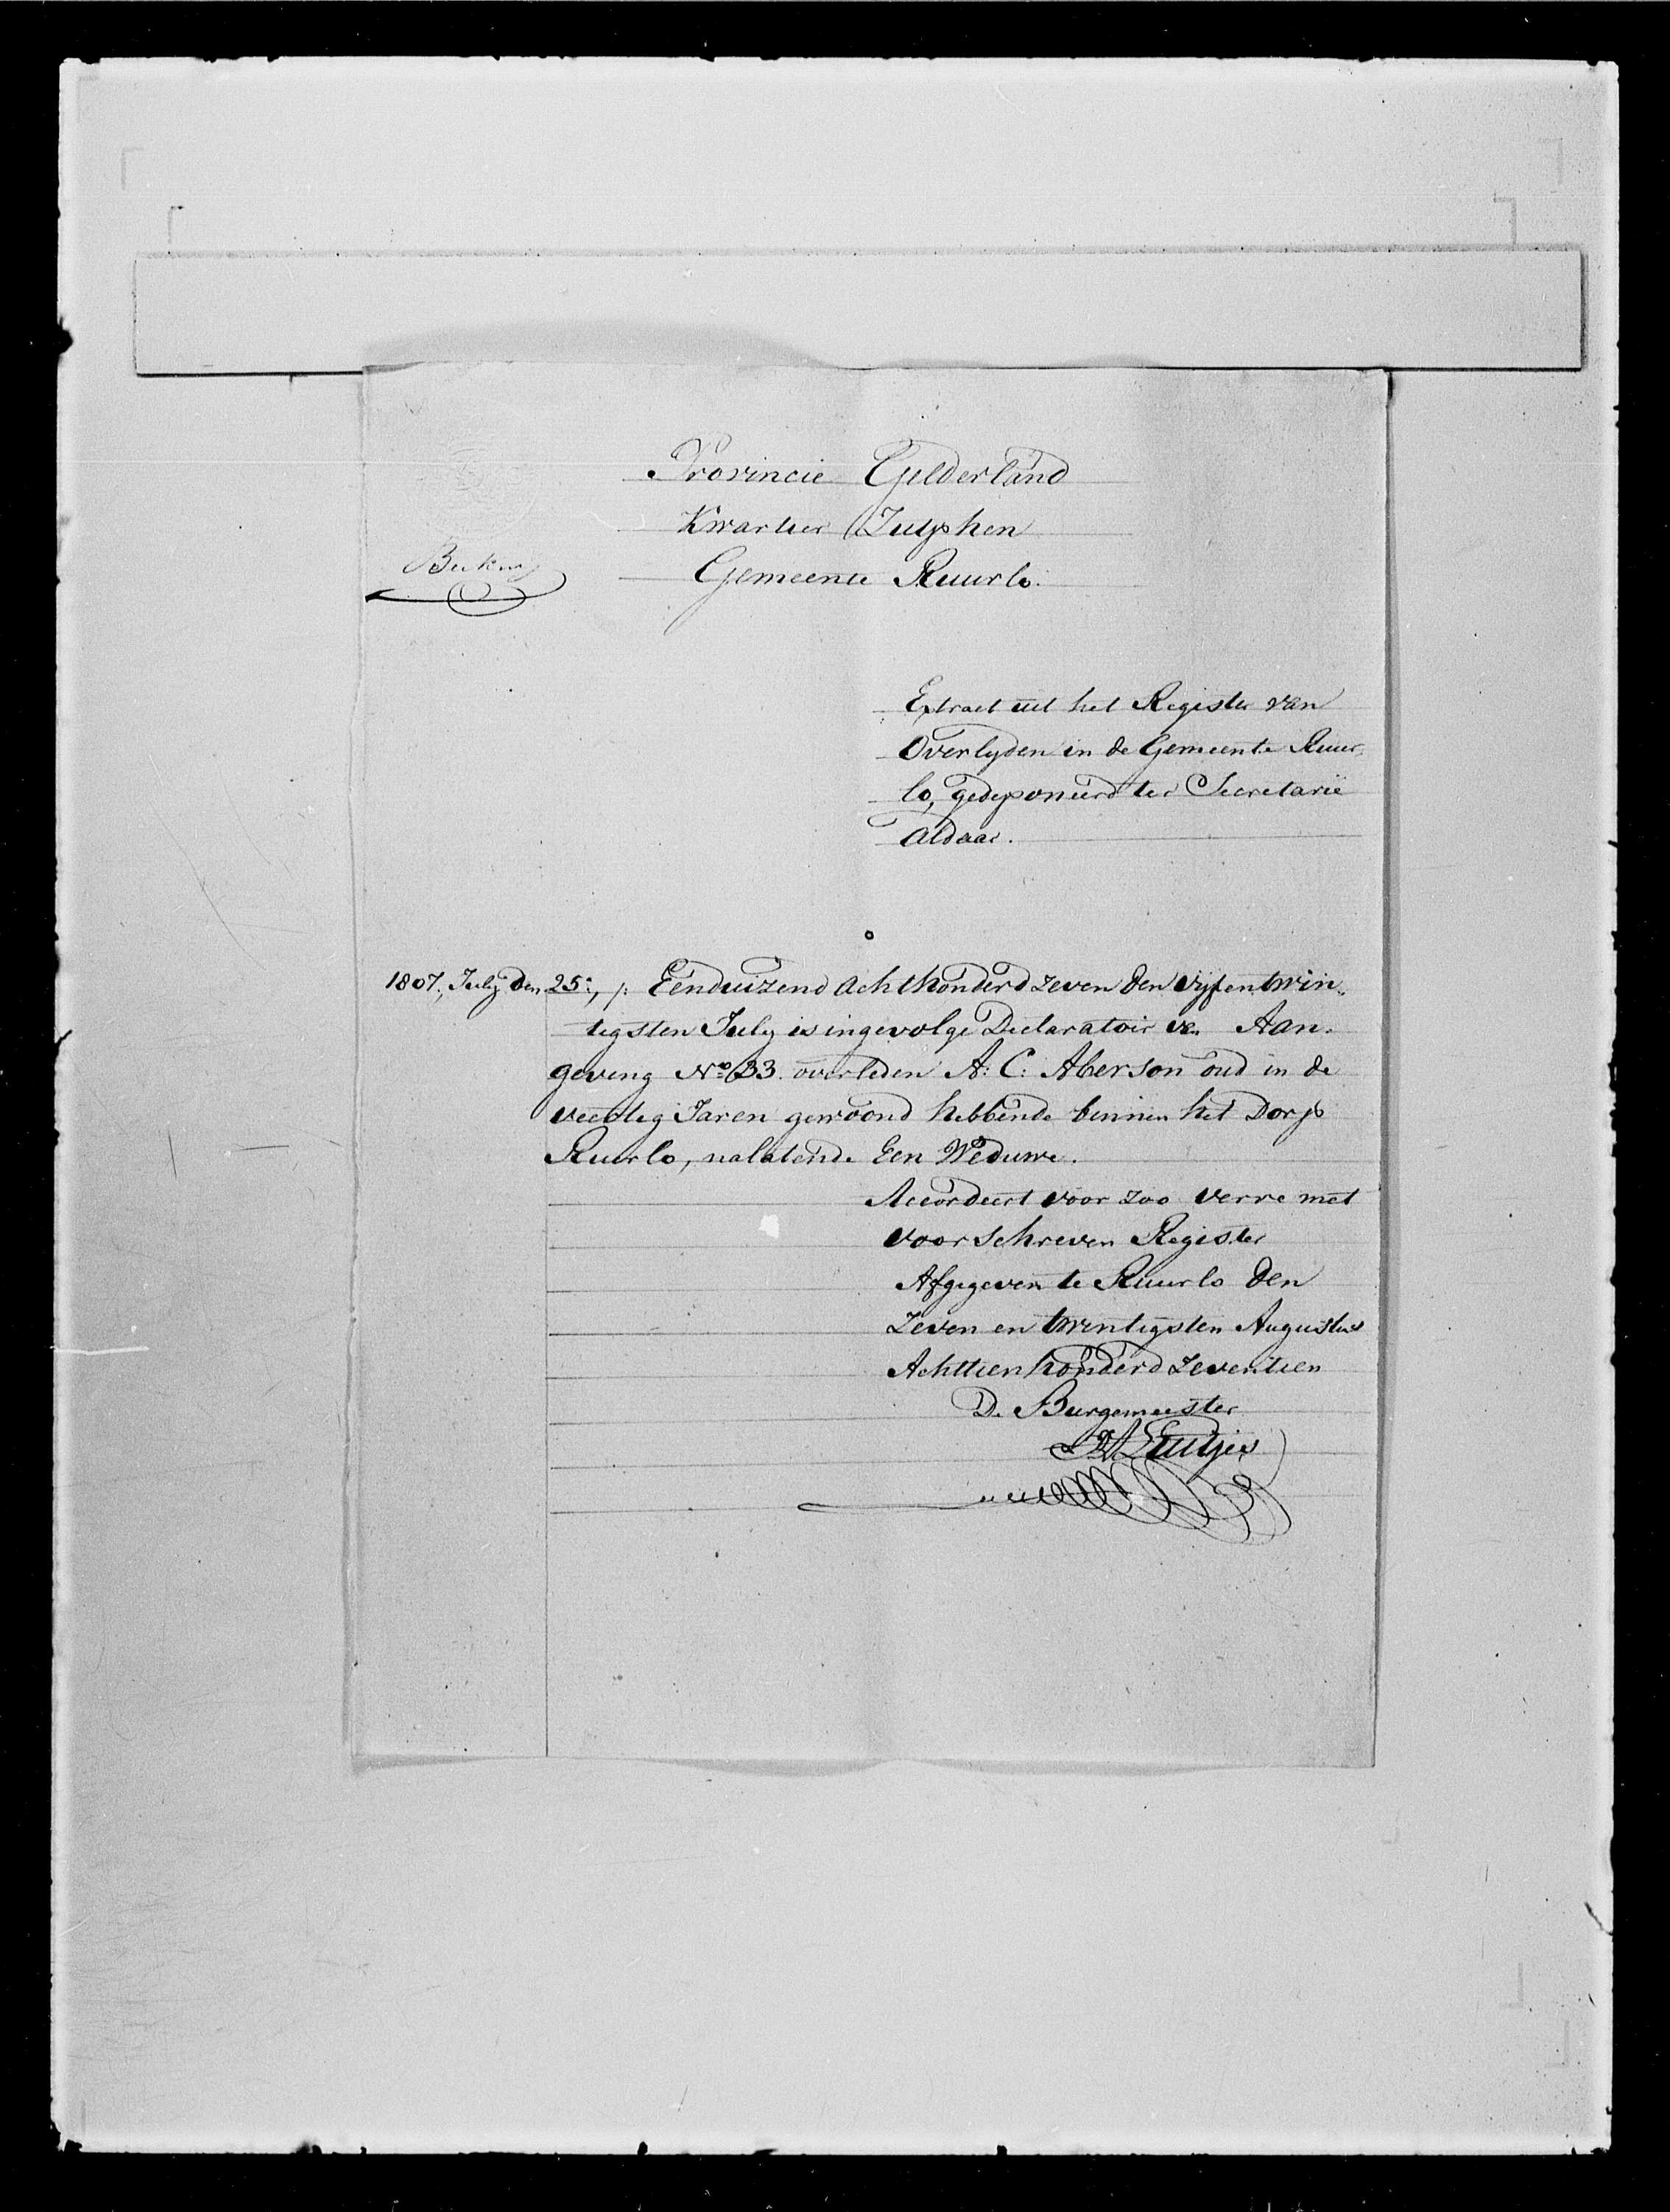 Provincie Gelderland
Kwartier Zutphen
Gemeente Ruurlo.
Extract uit het Register van
Overlyden in de Gemeente Ruur-
lo, gedeponeerd ter Secretarie
aldaar.
1807, July den 25:, /: Eenduizend achthonderd zeven den vijfentwin-
tigsten July is ingevolge Declaratoir van Aan-
geving No 33. overleden A: C: Aberson oud in de
veertig Jaren gewoond hebbende binnen het Dorp
Ruurlo, nalatende Een Weduwe.
Accordeert voor zoo verre met
voorschreven Register
Afgegeven te Ruurlo den
Zeven en twintigsten Augustus
Achttienhonderd zeventien
De Burgemeester